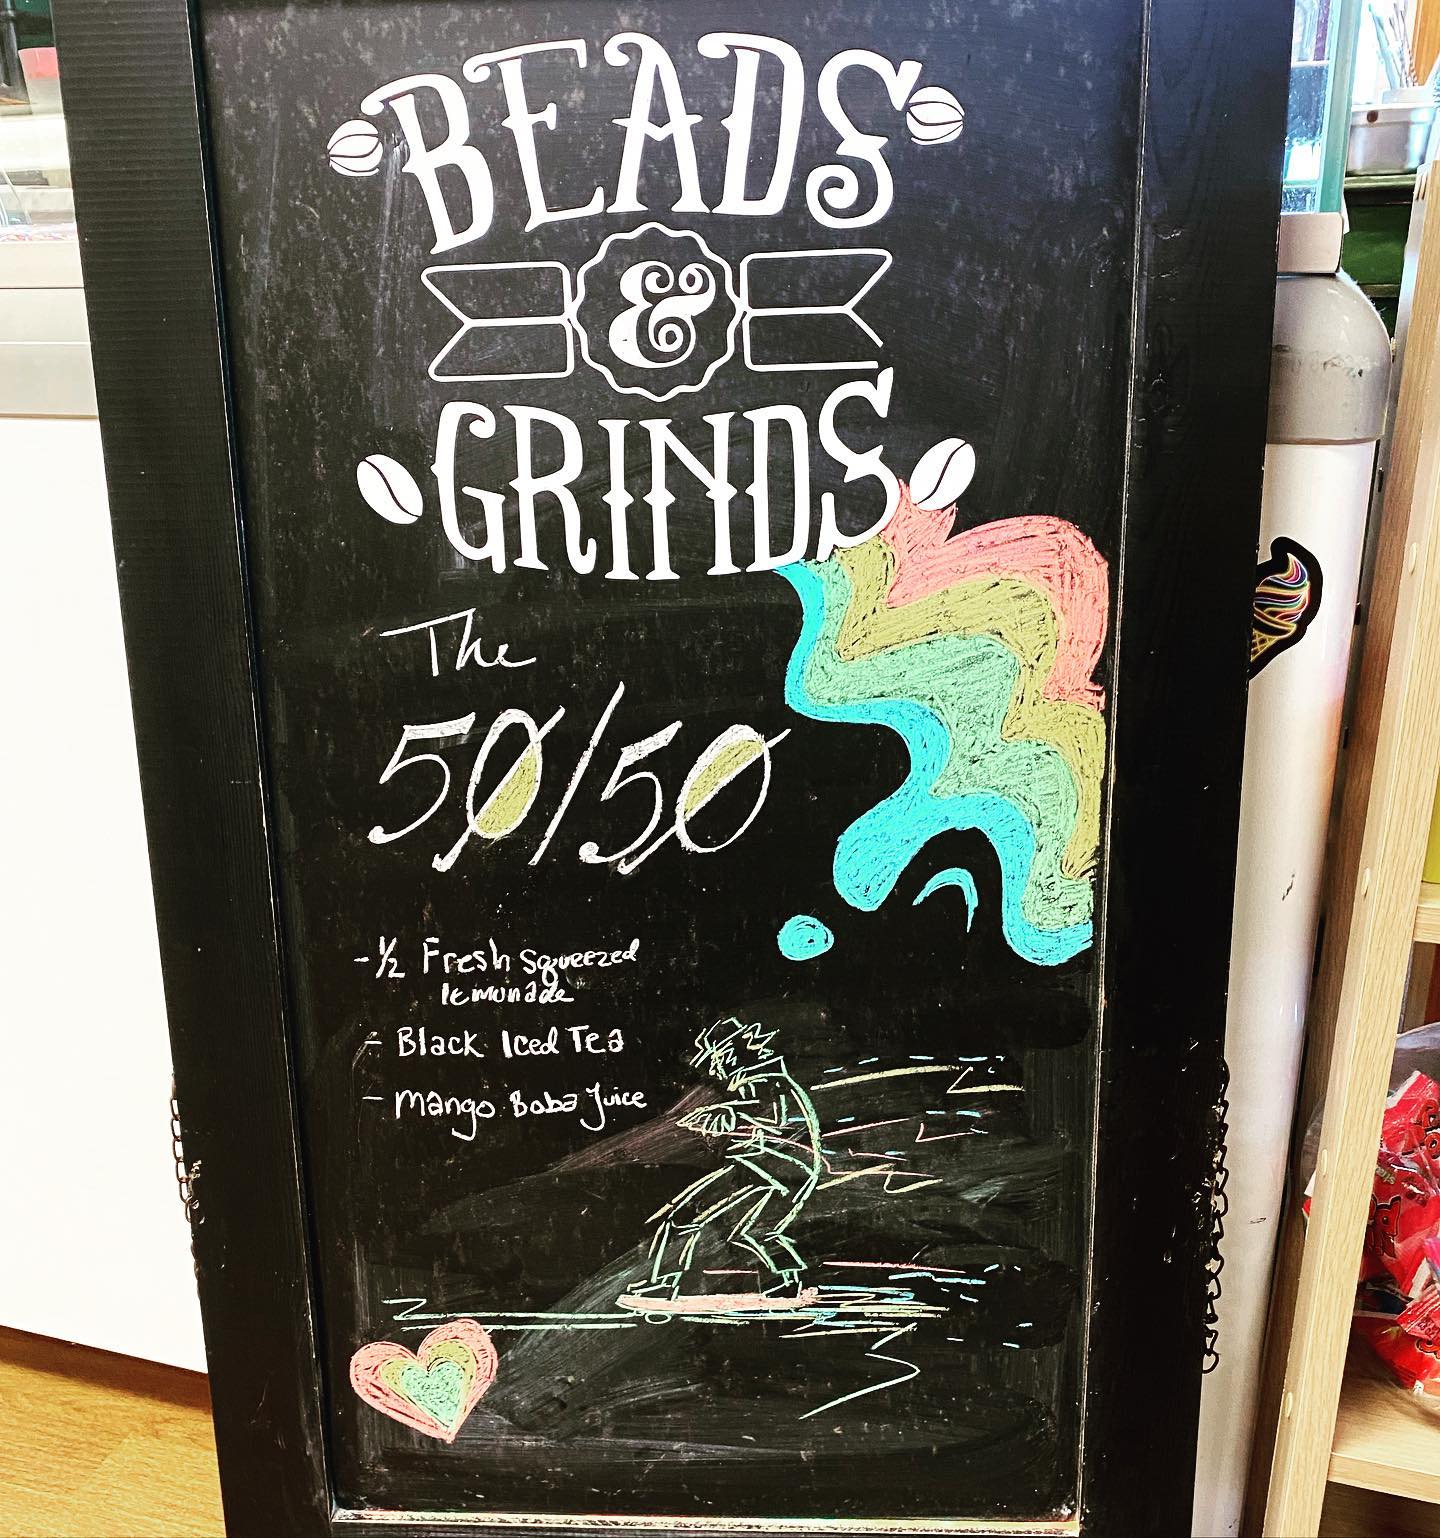 BEADS
&
GRINDS
The
50/50
- ½ Fresh Squeezed
lemonade
- Black Iced Tea
- Mango Boba Juice